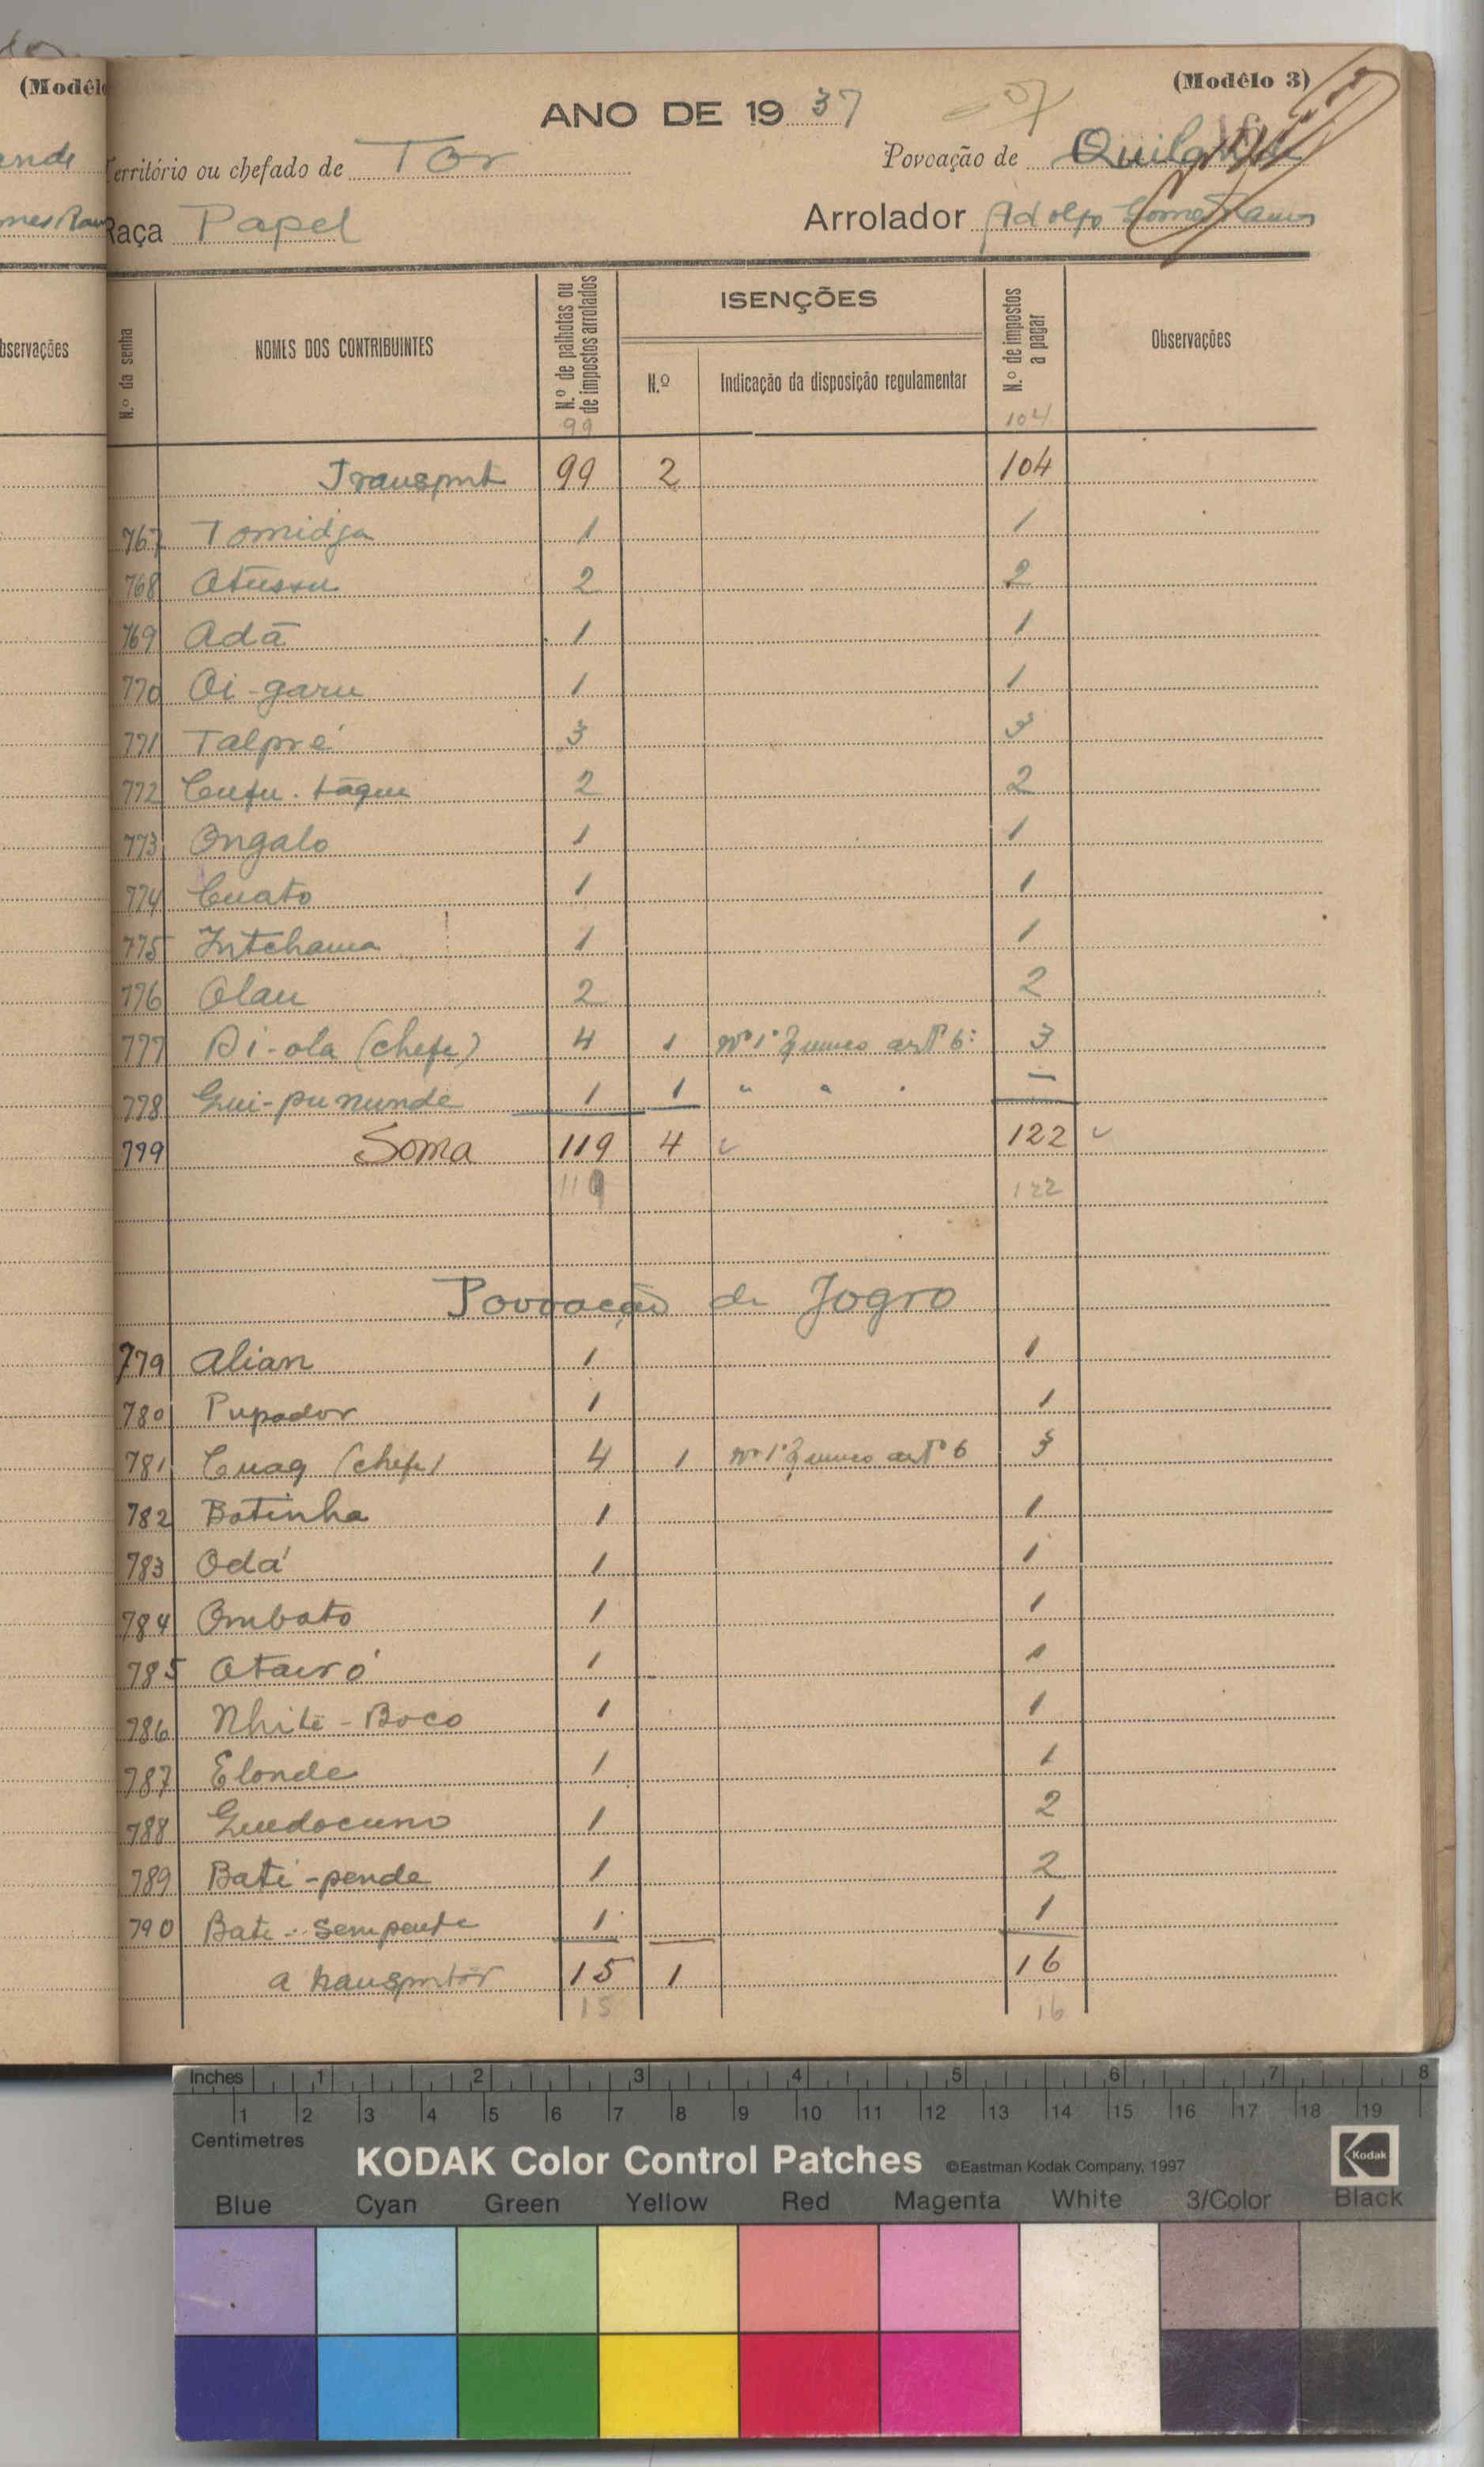 (Modêlo 3)
ANO DE 1937
Território ou chefado de Tor Povoação de
Raça Papel Arrolador Adolfo Gomes Ramos
N.º da senha NOMES DOS CONTRIBUINTES N.º de palhotas ou de impostos arrolados ISENÇÕES N.º Indicação da disposição regulamentar N.º de impostos a pagar Observações
99 104
Transporte 99 2 104
767 Tomidja 1 1
768 Atussu 2 2
769 Adã 1 1
770 Oi-garu 1 1
771 Talpré 3 3
772 Cufu-tãque 2 2
773 Ongalo 1 1
774 Cuato 1 1
775 Intchama 1 1
776 Olau 2 2
777 Di-ola (chefe) 4 1 Nº 1º § unico artº 6º 3
778 Gui-pununde 1 1 " " " —
799 Soma 119 4 122
119 122
Povoação de Jogro
779 Alian 1 1
780 Pupador 1 1
781 Cuaq (chefe) 4 1 Nº 1º § unico artº 6 3
782 Batinha 1 1
783 Odá 1 1
784 Ombato 1 1
785 Otairó 1 1
786 Nhite-Boco 1 1
787 Elonde 1 1
788 Guedocumo 1 2
789 Bati-pende 1 2
790 Bate-sempente 1 1
a transportar 15 1 16
15 16
Inches 1 2 3 4 5 6 7 8
1 2 3 4 5 6 7 8 9 10 11 12 13 14 15 16 17 18 19
Centimetres
KODAK Color Control Patches ©Eastman Kodak Company, 1997 Kodak
Blue Cyan Green Yellow Red Magenta White 3/Color Black